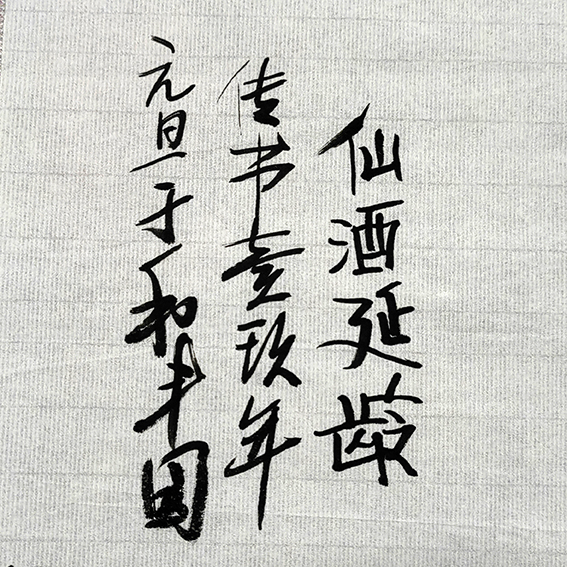 仙酒延龄
佳书壹玖年
元旦于和丰园